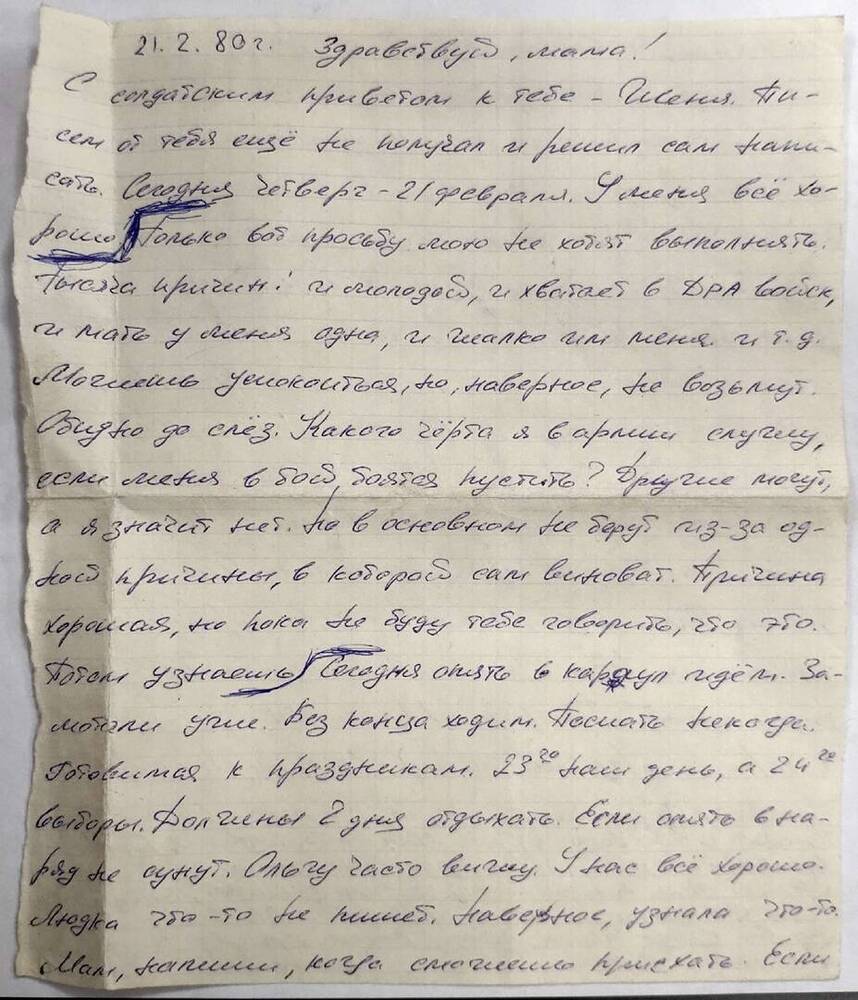 21.2.80г. Здравствуй, мама!
С солдатским приветом к тебе - Женя. Пи-
сем от тебя ещё не получал и решил сам напи-
сать. Сегодня четверг - 21 февраля. У меня всё хо-
рошо. Только вот просьбу мою не хотят выполнять.
Тысяча причин: и молодой, и хватает в ДРА войск,
и мать у меня одна, и жалко им меня и т.д.
Можешь успокоиться, но, наверное, не возьмут.
Обидно до слёз. Какого чёрта я в армии служу,
если меня в бой боятся пустить? Другие могут,
а я значит нет. Но в основном не берут из-за од-
ной причины, в которой сам виноват. Причина
хорошая, но пока не буду тебе говорить, что это.
Потом узнаешь. Сегодня опять в караул идём. За-
мотали уже. Без конца ходим. Поспать некогда.
Готовимся к праздникам. 23го наш день, а 24го
выборы. Должны 2 дня отдыхать. Если опять в на-
ряд не сунут. Ольгу часто вижу. У нас всё хорошо.
Людка что-то не пишет. Наверное, узнала что-то.
Мам, напиши, когда сможешь приехать. Если